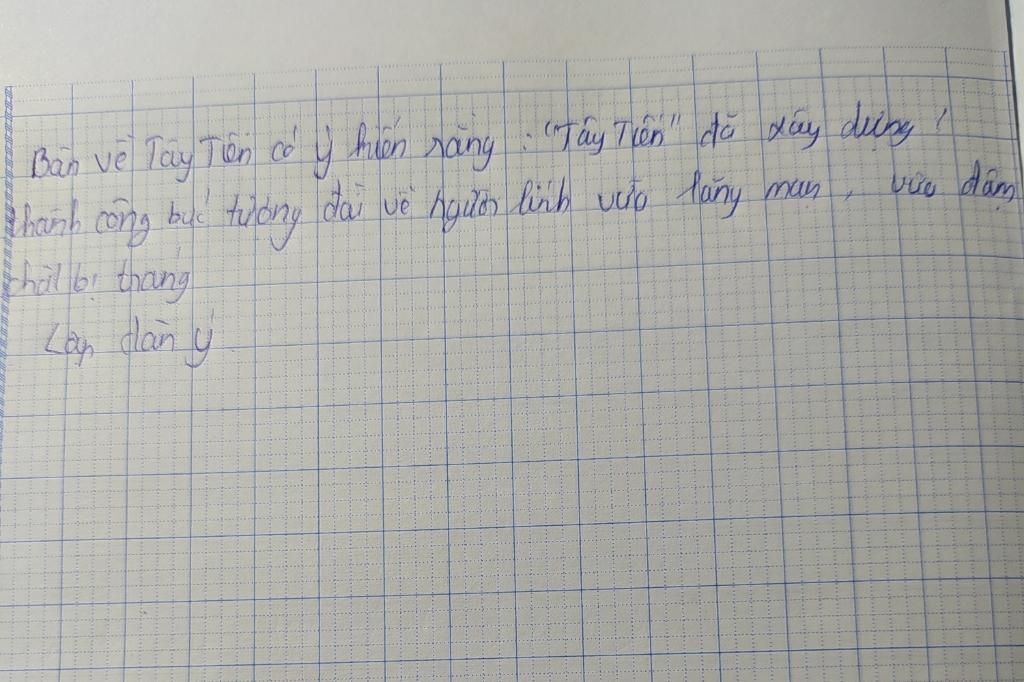 Bàn về Tây Tiến có ý kiến rằng: "Tây Tiến" đã xây dựng
thành công bức tượng đài về người lính vừa lãng mạn, vừa đậm
chất bi tráng
Lập dàn ý